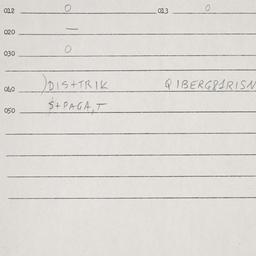 012 O 013 O
020 —
030 O
040 )DIS+TRIK QIBERG81RISN
050 $+PAGA,T